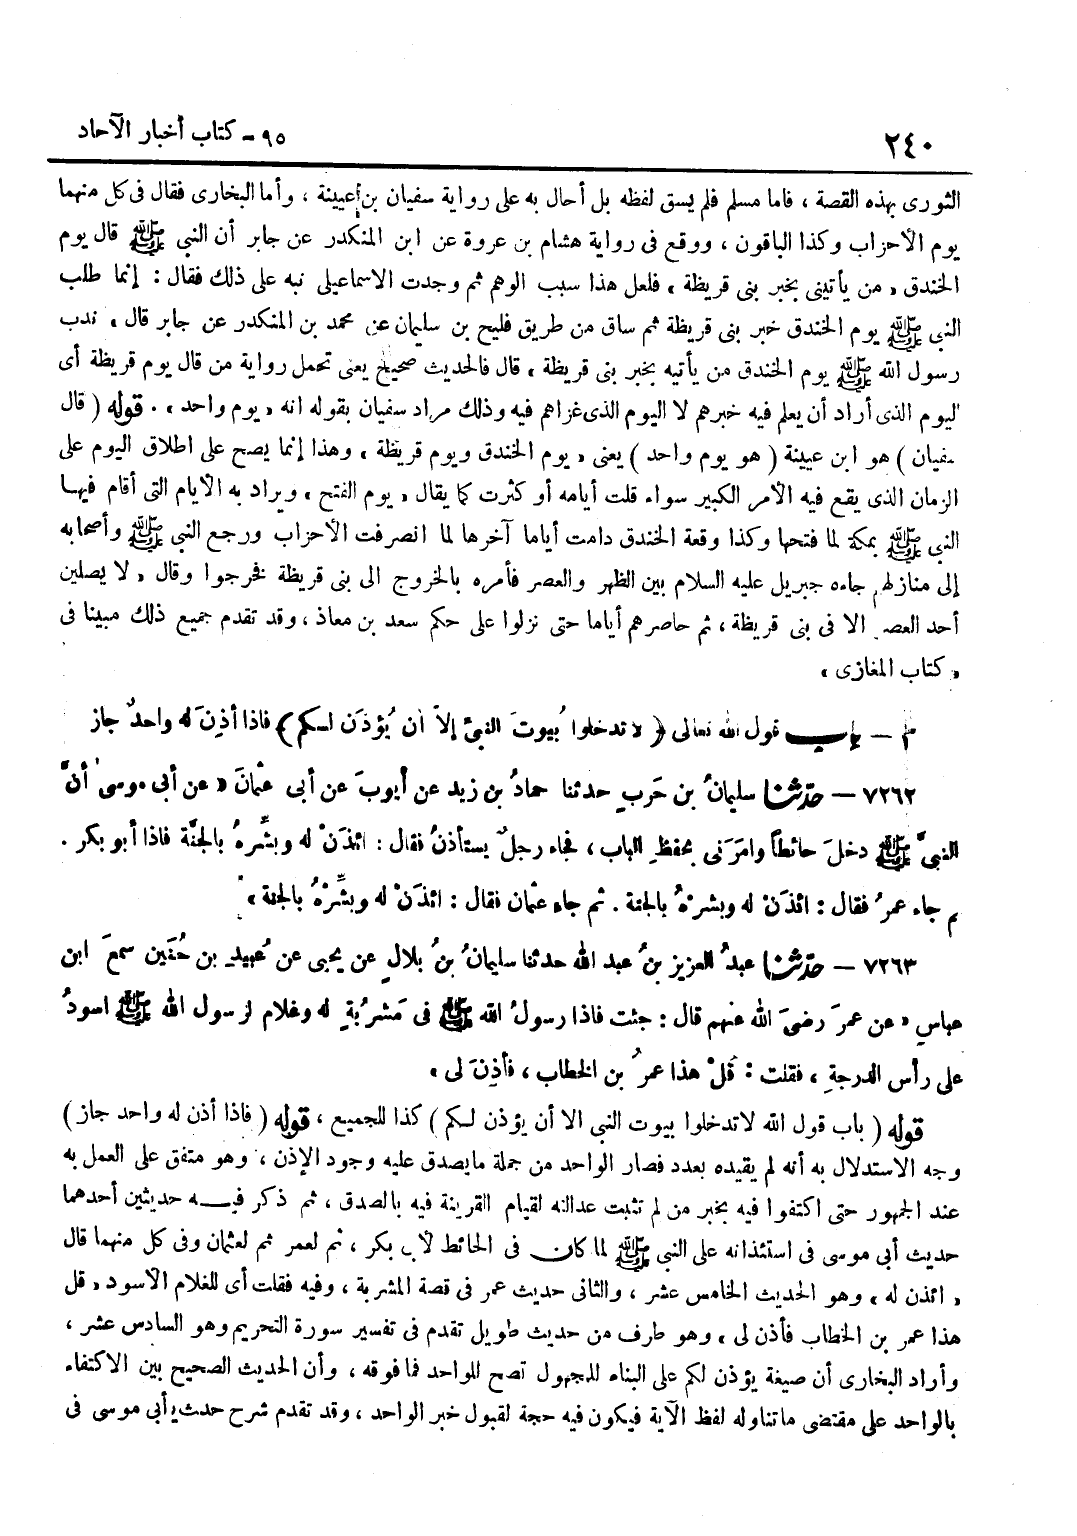 ٢٤٠
٩٥ - كتاب أخبار الآحاد
الثورى بهذه القصة ، فاما مسلم فلم يسق لفظه بل أحال به على رواية سفيان بن عيينة ، وأما البخارى فقال فى كل منهما
يوم الأحزاب وكذا الباقون ، ووقع فى رواية هشام بن عروة عن ابن المنكدر عن جابر أن النبي ﷺ قال يوم
الخندق « من يأتينى بخبر بنى قريظة » فلعل هذا سبب الوهم ثم وجدت الاسماعيلى نبه على ذلك فقال : إنما طلب
النبي ﷺ يوم الخندق خبر بنى قريظة ثم ساق من طريق فليح بن سليمان عن محمد بن المنكدر عن جابر قال « ندب
رسول الله ﷺ يوم الخندق من يأتيه بخبر بنى قريظة » قال فالحديث صحيح يعنى تحمل رواية من قال يوم قريظة أى
اليوم الذى أراد أن يعلم فيه خبرهم لا اليوم الذى غزاهم فيه وذلك مراد سفيان بقوله انه « يوم واحد » . قوله ( قال
سفيان ) هو ابن عيينة ( هو يوم واحد ) يعنى « يوم الخندق ويوم قريظة » وهذا إنما يصح على اطلاق اليوم على
الزمان الذى يقع فيه الأمر الكبير سواء قلت أيامه أو كثرت كما يقال « يوم الفتح » ويراد به الأيام التى أقام فيها
النبي ﷺ بمكة لما فتحها وكذا وقعة الخندق دامت أياما آخرها لما انصرفت الأحزاب ورجع النبي ﷺ وأصحابه
إلى منازلهم جاءه جبريل عليه السلام بين الظهر والعصر فأمره بالخروج الى بنى قريظة فخرجوا وقال « لا يصلين
أحد العصر الا فى بنى قريظة ، ثم حاصرهم أياما حتى نزلوا على حكم سعد بن معاذ ، وقد تقدم جميع ذلك مبينا فى
« كتاب المغازى »
٣ - باب قول الله تعالى ﴿ لا تدخلوا بُيوتَ النبيِّ إلاّ أن يُؤذَن لـكم ﴾ فاذا أذِنَ له واحدٌ جاز
٧٢٦٢ - حدّثنا سليمانُ بن حَربٍ حدثنا حمادُ بن زيد عن أيوبَ عن أبى عثمانَ « عن أبى موسى أنَّ
النبيَّ ﷺ دخلَ حائطاً وامرَنى بحفظِ الباب ، فجاء رجلٌ يستأذنُ فقال : ائذَنْ له وبشِّرهُ بالجنَّة فاذا أبو بكر .
ثم جاء عمرُ فقال : ائذَنْ له وبشرهُ بالجنة . ثم جاء عثمان فقال : ائذَنْ له وبشِّرْهُ بالجنة »
٧٢٦٣ - حدّثنا عبدُ العزيز بنُ عبد الله حدثنا سليمانُ بنُ بلالٍ عن يحيى عن عُبيدِ بن حُنَينٍ سمعَ ابن
عباسٍ « عن عمرَ رضىَ اللهُ عنهم قال : جئت فاذا رسولُ الله ﷺ فى مَشرُبةٍ له وغلام لرسول الله ﷺ اسودُ
على رأس الدرجةِ ، فقلت : قُلْ هذا عمرُ بن الخطاب ، فأذِنَ لى »
قوله ( باب قول الله لاتدخلوا بيوت النبي الا أن يؤذن لـكم ) كذا للجميع ، قوله ( فاذا أذن له واحد جاز )
وجه الاستدلال به أنه لم يقيده بعدد فصار الواحد من جملة مايصدق عليه وجود الإذن ، وهو متفق على العمل به
عند الجمهور حتى اكتفوا فيه بخبر من لم تثبت عدالته لقيام القرينة فيه بالصدق ، ثم ذكر فيـــه حديثين أحدهما
حديث أبى موسى فى استئذانه على النبي ﷺ لما كان فى الحائط لأبى بكر ، ثم لعمر ثم لعثمان وفى كل منهما قال
« ائذن له » وهو الحديث الخامس عشر ، والثانى حديث عمر فى قصة المشربة ، وفيه فقلت أى للغلام الأسود « قل
هذا عمر بن الخطاب فأذن لى » وهو طرف من حديث طويل تقدم فى تفسير سورة التحريم وهو السادس عشر ،
وأراد البخارى أن صيغة يؤذن لكم على البناء للمجهول تصح للواحد فما فوقه ، وأن الحديث الصحيح بين الاكتفاء
بالواحد على مقتضى ماتناوله لفظ الآية فيكون فيه حجة لقبول خبر الواحد ، وقد تقدم شرح حديث أبى موسى فى